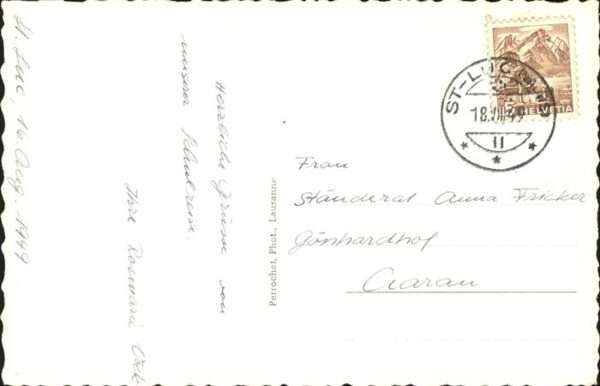 St. Luc, 16. Aug. 1949
Herzliche Grüsse von
unserer Schulreise.
Ihre Rosmarie
Perrochet, Phot., Lausanne
ST-LUC
18.VIII.49
11
HELVETIA
Frau
Ständerat Anna Fricker
Gönhardhof
Aarau